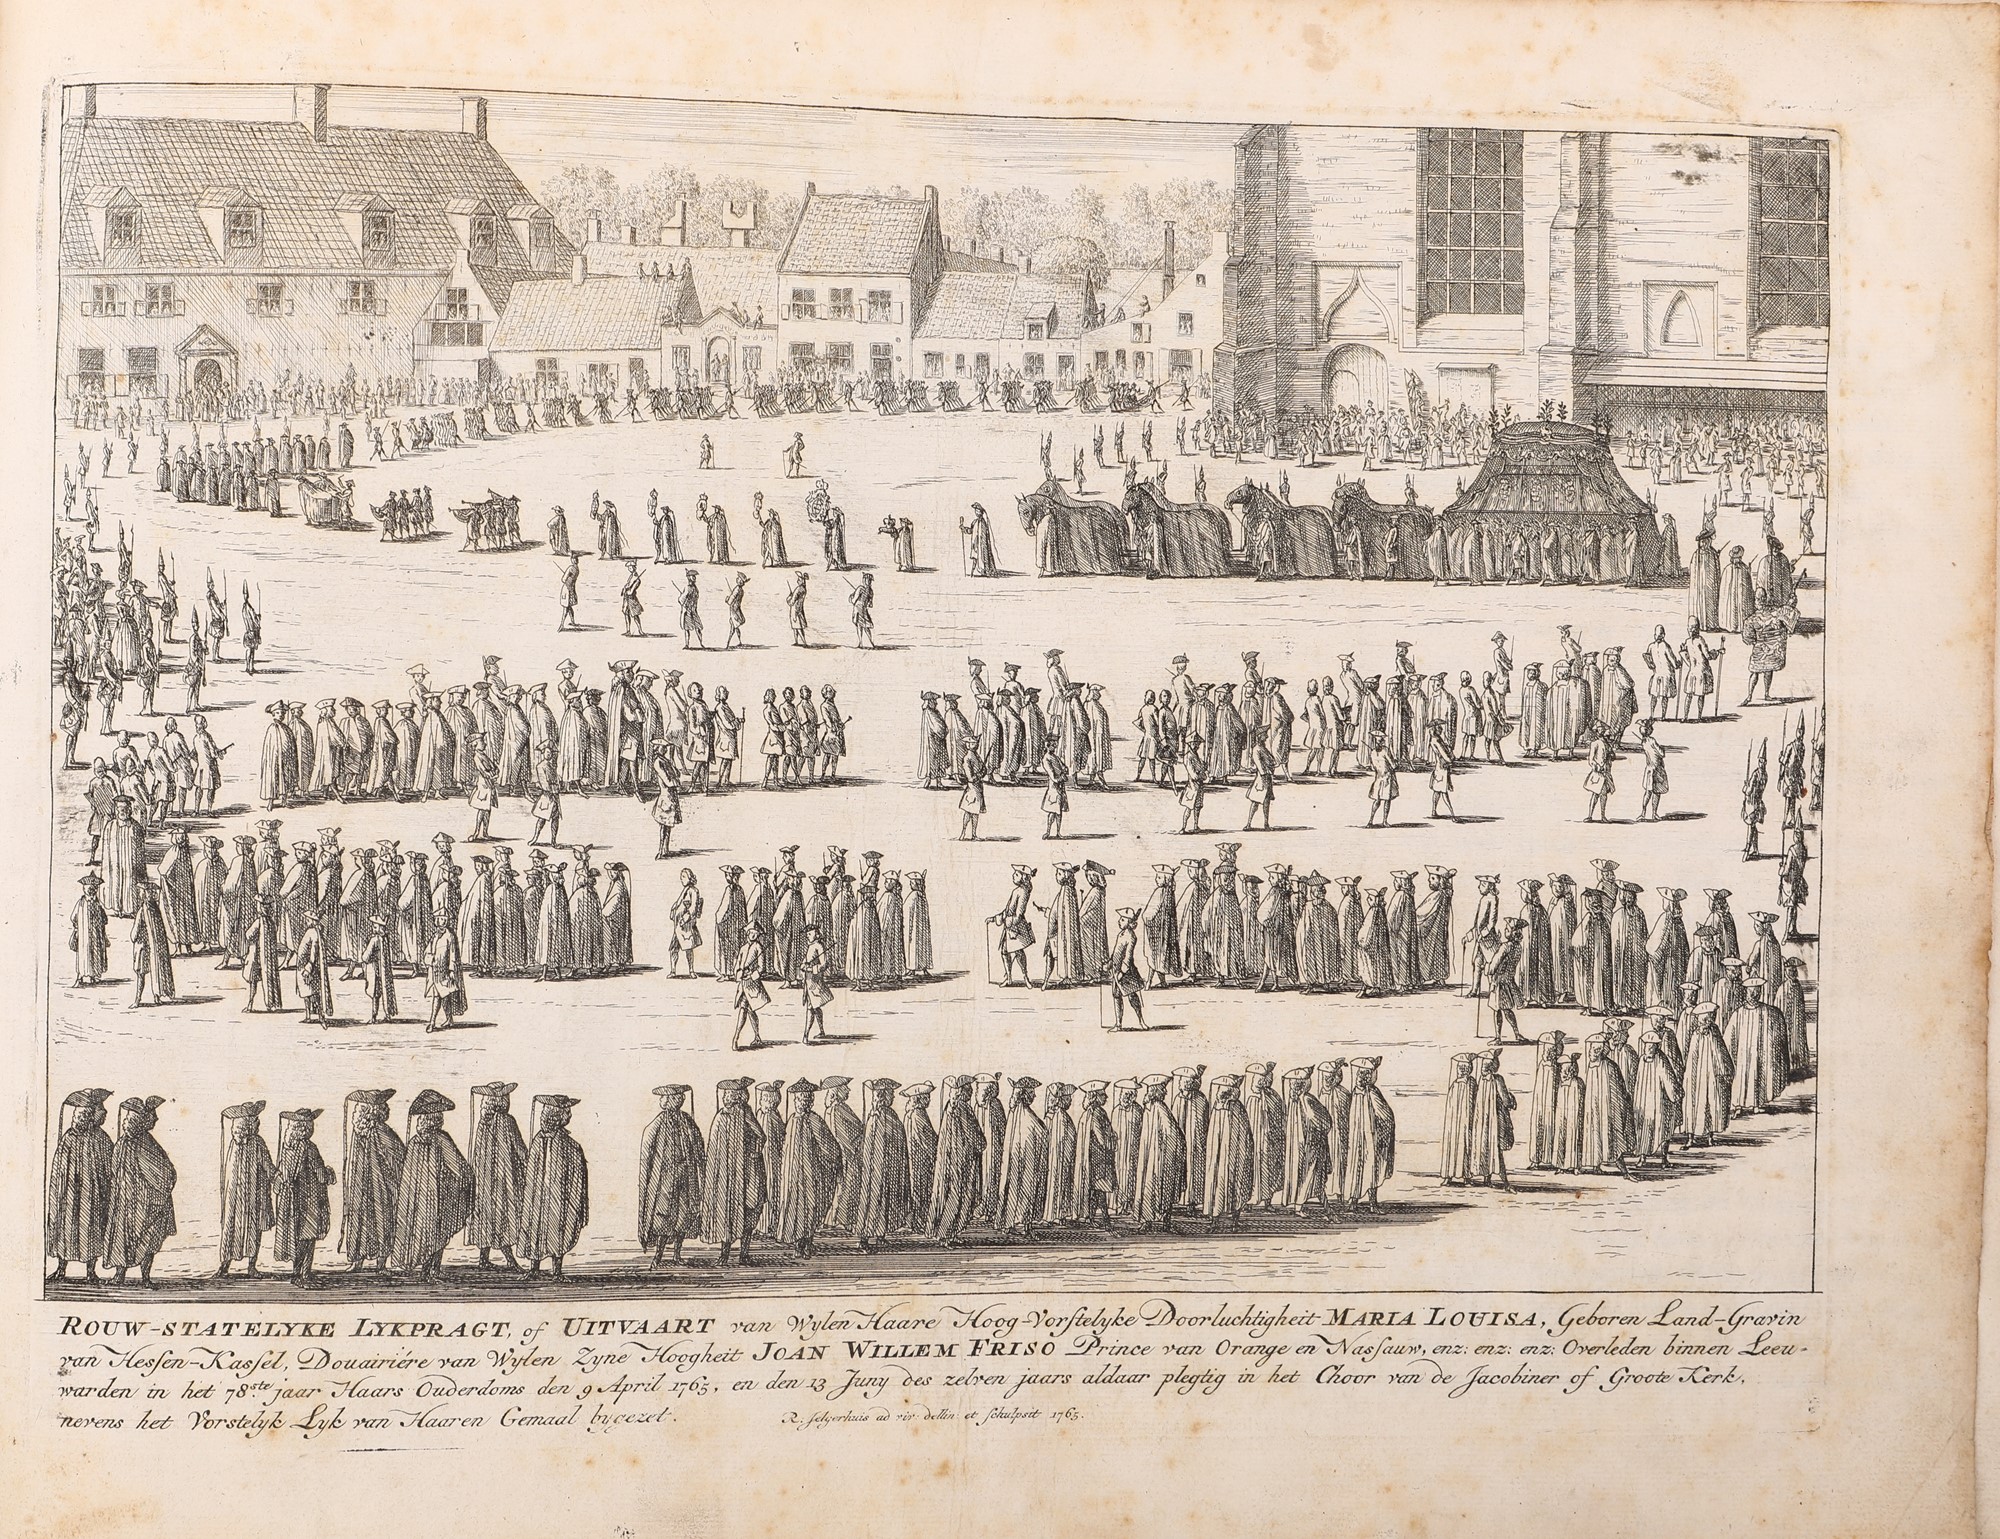 ROUW-STATELYKE LYKPRAGT, of UITVAART van Wylen Haare Hoog-Vorstelyke Doorluchtigheit MARIA LOUISA, Geboren Land-Gravin
van Hessen-Kassel, Douairiére van Wylen Zyne Hoogheit JOAN WILLEM FRISO Prince van Orange en Nassauw, enz: enz: enz: Overleden binnen Leeu-
warden in het 78ste jaar Haars Ouderdoms den 9 April 1765, en den 13 Juny des zelven jaars aldaar plegtig in het Choor van de Jacobiner of Groote Kerk,
nevens het Vorstelyk Lyk van Haaren Gemaal bygezet.
R: Selgerhuis ad viv: dellin: et schulpsit 1765.